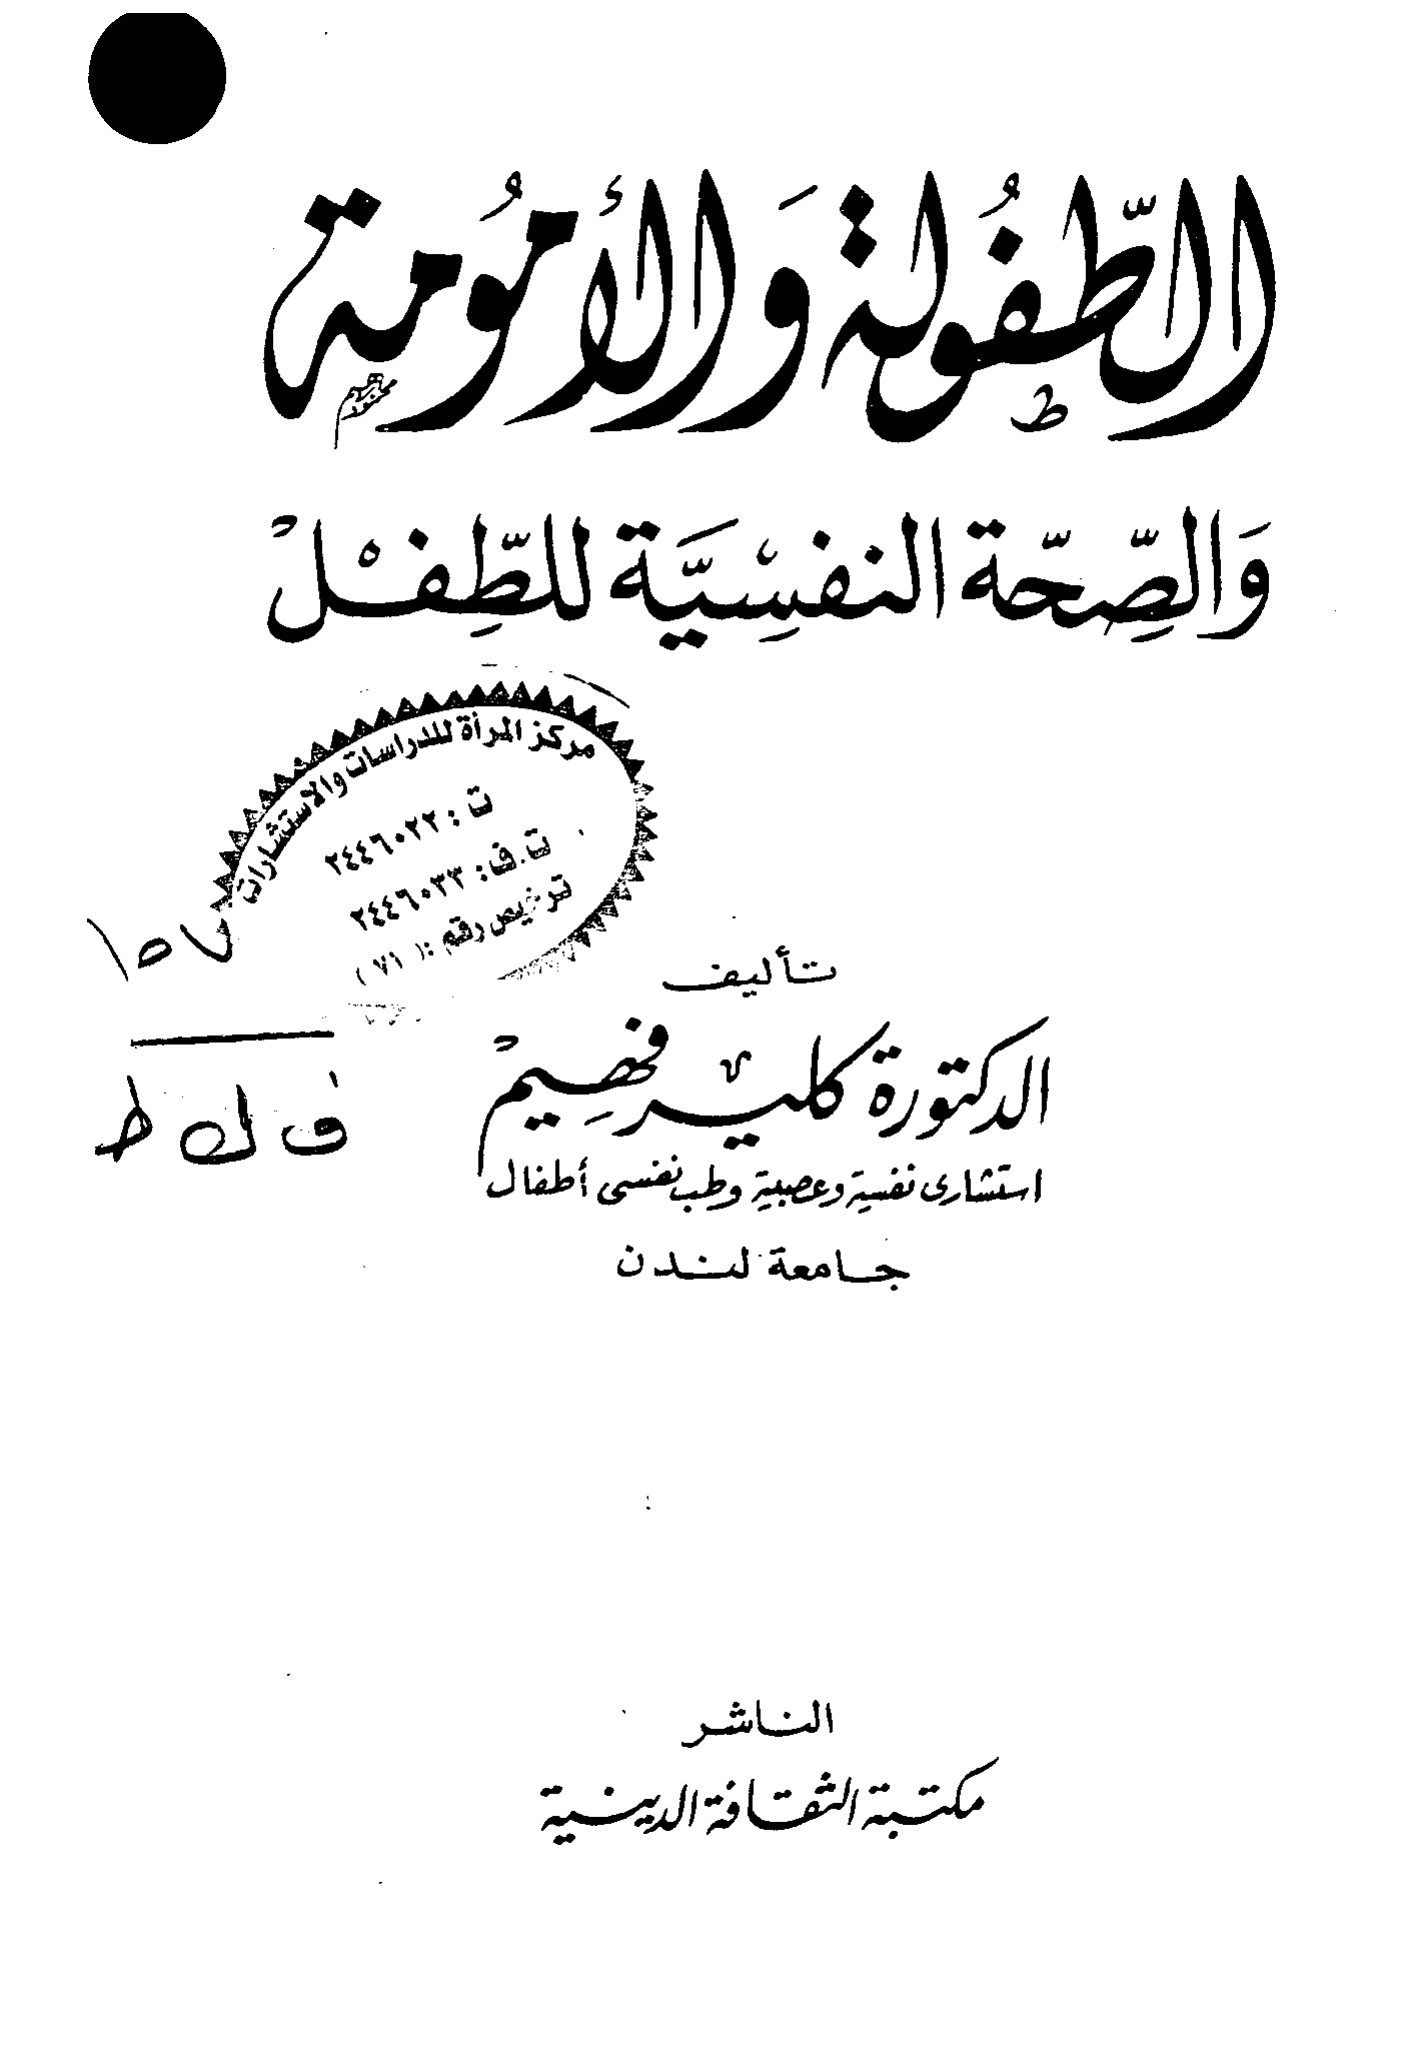 الطُّفُولة وَالأُمُومة
وَالصِّحّة النفسِيَّة للطِّفل
مركز المرأة للدراسات والاستشارات
ت : ٢٤٤٦٠٢٢
ت.ف: ٢٤٤٦٠٣٣
ترخيص رقم : (٧١)
١٥٧
ف ك ط
تأليف
الدكتورة كلير فهيم
استشارى نفسية وعصبية وطب نفسى أطفال
جامعة لندن
الناشر
مكتبة الثقافة الدينية